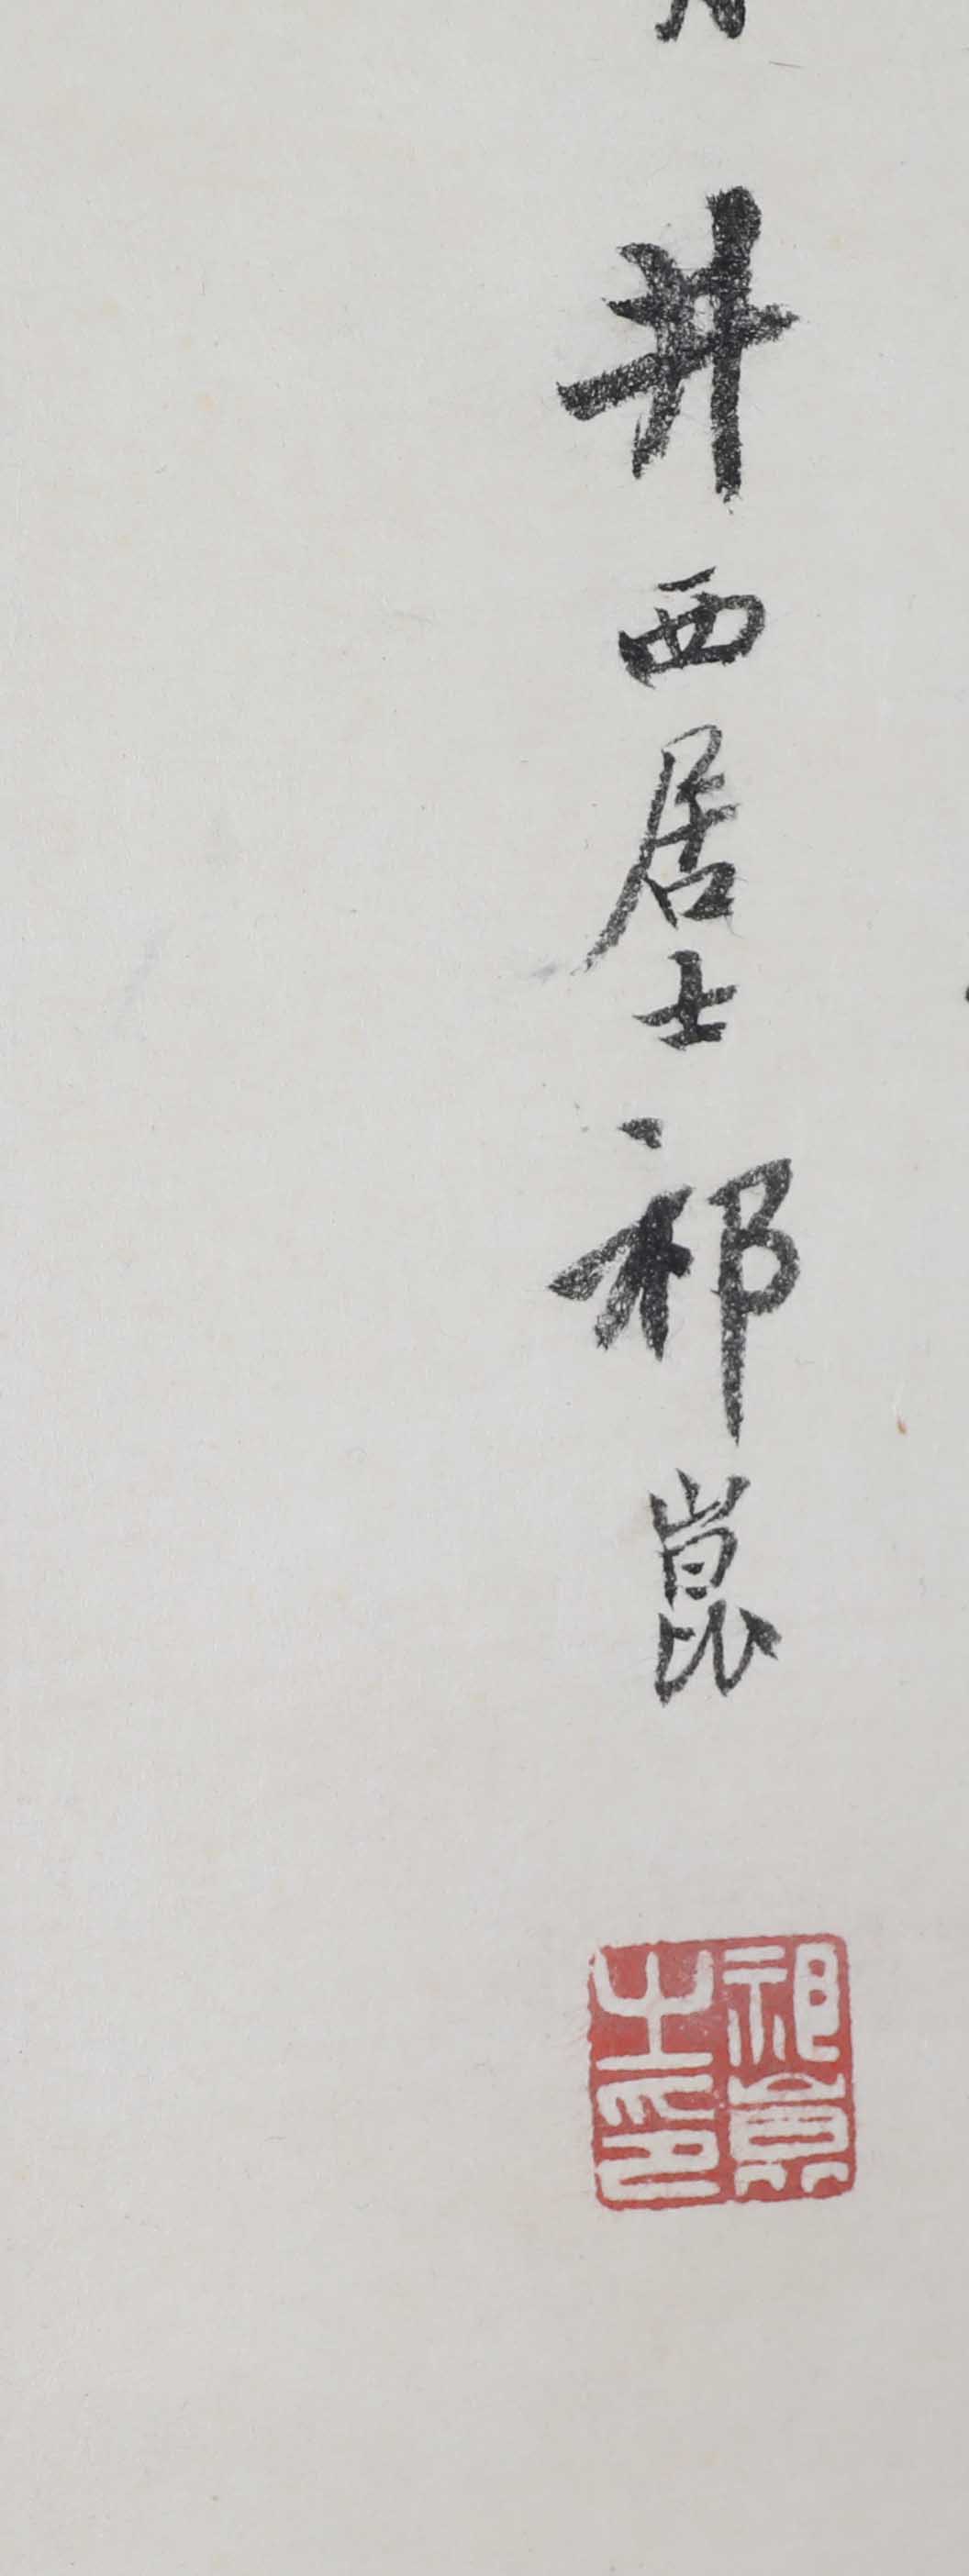 井西居士祁崑
祁崑之印